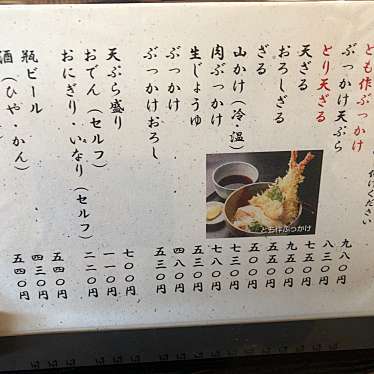 付ください
とも作ぶっかけ 九八〇円
ぶっかけ天ぷら 八三〇円
とり天ざる 七五〇円
天ざる 九五〇円
おろしざる 五五〇円
ざる 五〇〇円
山かけ（冷・温） 七三〇円
肉ぶっかけ 七八〇円
生じょうゆ
ぶっかけ 四八〇円
ぶっかけおろし 五三〇円
天ぷら盛り 七〇〇円
おでん（セルフ） 一一〇円
おにぎり・いなり（セルフ） 二二〇円
瓶ビール 五四〇円
酒（ひや・かん） 四三〇円
五四〇円
とも作ぶっかけ